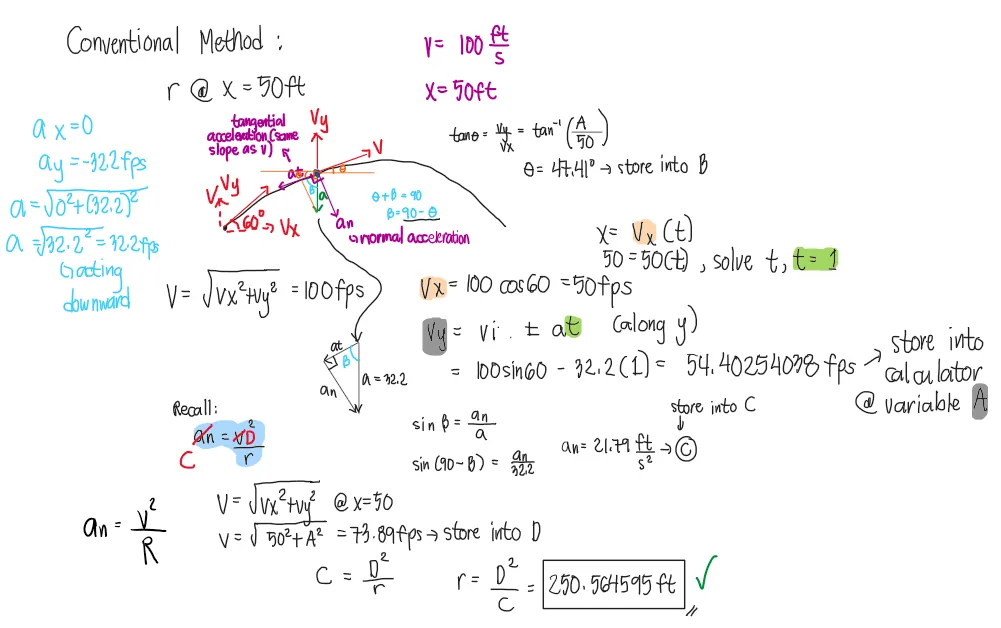 Conventional Method:
r @ x = 50ft
V = 100 ft/s
x = 50ft
ax = 0
ay = -32.2 fps
a = √(0² + (32.2)²)
a = √32.2² = 32.2 fps
↳ acting
downward
tangential
acceleration (same
slope as V)
Vy
V
at
θ
θ
β
a
an
↳ normal acceleration
V
Vy
60°
Vx
θ + β = 90
β = 90 - θ
tanθ = Vy/Vx = tan⁻¹(A/50)
θ = 47.41° → store into B
x = Vx (t)
50 = 50(t), solve t, t = 1
V = √(Vx² + Vy²) = 100 fps
Vx = 100 cos60 = 50 fps
Vy = vi. ± at (along y)
= 100sin60 - 32.2(1) = 54.40254038 fps → store into
calculator
@ variable A
at
β
an
a = 32.2
Recall:
an = vD²/r
C
sin β = an/a
sin (90-B) = an/32.2
store into C
an = 21.79 ft/s² → C
an = V²/R
V = √(Vx² + Vy²) @ x = 50
V = √(50² + A²) = 73.89 fps → store into D
C = D²/r
r = D²/C = 250.564595 ft ✓